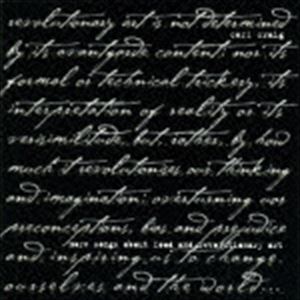 revolutionary art is not determined
carl craig
by its avantgarde content, nor its
formal or technical trickery, its
interpretation of reality or its
verisimilitude, but, rather, by how
much it revolutionses our thinking
and imagination; overturning our
preconceptions, bias and prejudice
more songs about food and revolutionary art
and inspiring us to change
ourselves and the world...